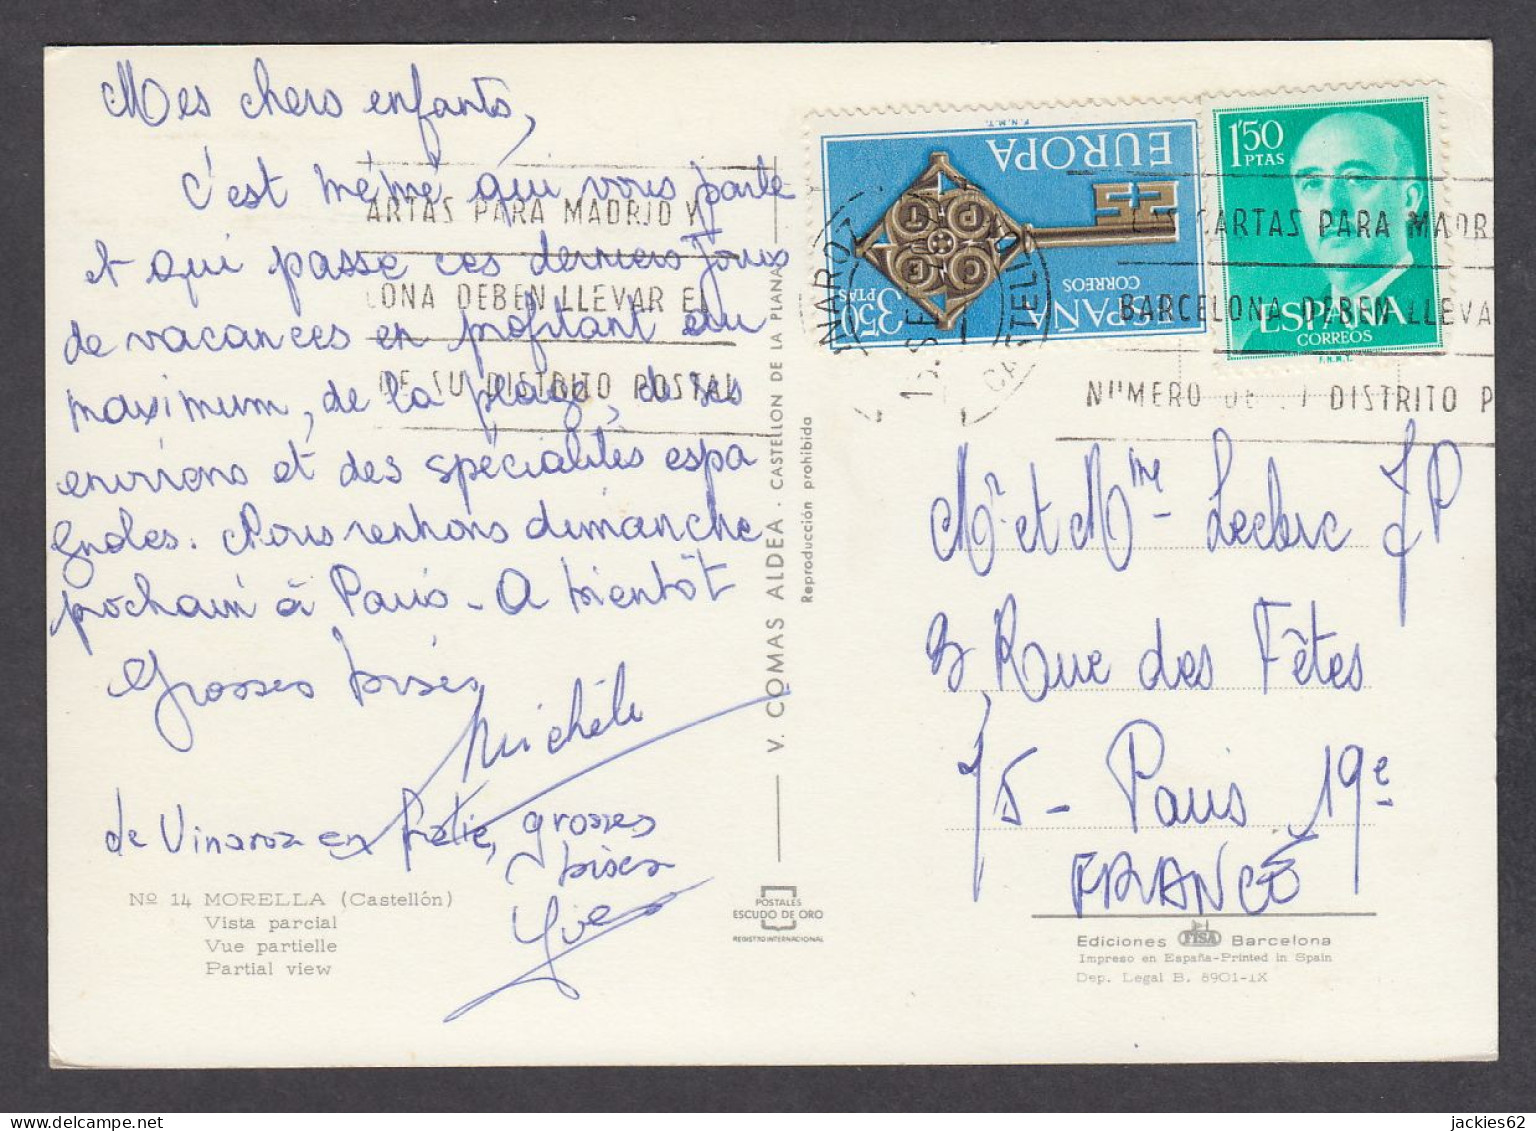 Mes chers enfants,
C'est mémé qui vous parle
et qui passe ces derniers jours
de vacances en profitant au
maximum, de la plage, de ses
environs et des spécialités espa
gnoles. Nous rentrons dimanche
prochain à Paris - A bientôt
Grosses bises
Michèle
de Vinaroz en , grosses
bises
Yves
Nº 14 MORELLA (Castellón)
Vista parcial
Vue partielle
Partial view
V. COMAS ALDEA - CASTELLON DE LA PLANA
Reproducción prohibida
POSTALES
ESCUDO DE ORO
REGISTRO INTERNACIONAL
ARTAS PARA MADRID Y
LONA DEBEN LLEVAR EL
DE SU DISTRITO POSTAL
F.N.M.T.
EUROPA
CORREOS
ESPAÑA
3,50
PTAS
1'50
PTAS
ESPAÑA
CORREOS
F.N.M.T.
VINAROZ
CASTELLON
CARTAS PARA MADR
BARCELONA DEBEN LLEVA
NUMERO DE SU DISTRITO P
Mr et Mme Leclerc JP
Rue des Fêtes
75 - Paris 19e
FRANCE
Ediciones FISA Barcelona
Impreso en España-Printed in Spain
Dep. Legal B. 8901-IX
jackies62